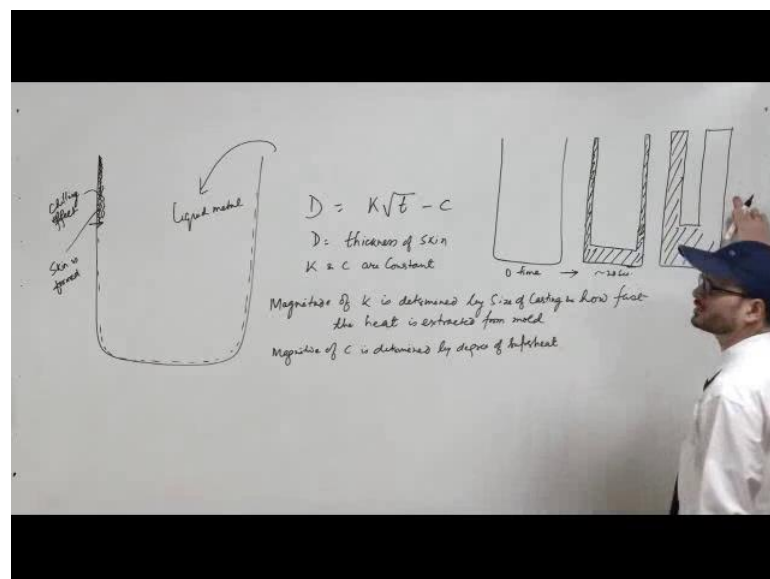 Chilling
effect
Skin is
formed
Liquid metal
D = K√t - C
D = thickness of Skin
K & C are Constant
Magnitude of K is determined by Size of Casting & how fast
the heat is extracted from mold
Magnitude of C is determined by degree of Superheat
0 time → ~20 sec